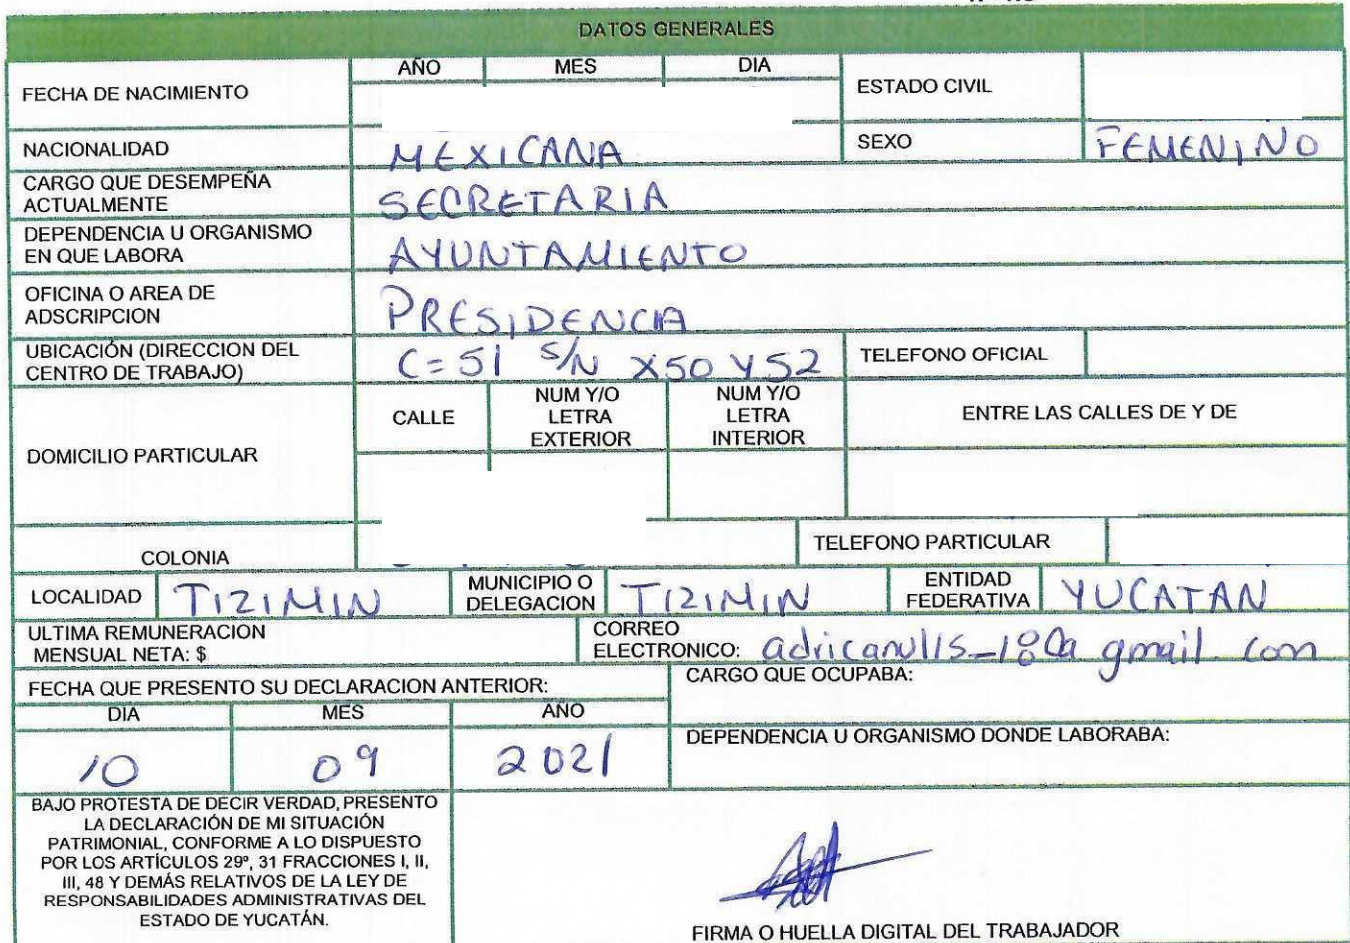 DATOS GENERALES
FECHA DE NACIMIENTO
AÑO MES DIA
ESTADO CIVIL
NACIONALIDAD MEXICANA SEXO FEMENINO
CARGO QUE DESEMPEÑA
ACTUALMENTE
SECRETARIA
DEPENDENCIA U ORGANISMO
EN QUE LABORA
AYUNTAMIENTO
OFICINA O AREA DE
ADSCRIPCION
PRESIDENCIA
UBICACIÓN (DIRECCION DEL
CENTRO DE TRABAJO)
C=51 S/N X50 Y52
TELEFONO OFICIAL
DOMICILIO PARTICULAR
CALLE
NUM Y/O
LETRA
EXTERIOR
NUM Y/O
LETRA
INTERIOR
ENTRE LAS CALLES DE Y DE
COLONIA
TELEFONO PARTICULAR
LOCALIDAD TIZIMIN
MUNICIPIO O
DELEGACION
TIZIMIN
ENTIDAD
FEDERATIVA
YUCATAN
ULTIMA REMUNERACION
MENSUAL NETA: $
CORREO
ELECTRONICO: adricanul15_18@ gmail com
FECHA QUE PRESENTO SU DECLARACION ANTERIOR:
CARGO QUE OCUPABA:
DIA MES AÑO
10 09 2021
DEPENDENCIA U ORGANISMO DONDE LABORABA:
BAJO PROTESTA DE DECIR VERDAD, PRESENTO
LA DECLARACIÓN DE MI SITUACIÓN
PATRIMONIAL, CONFORME A LO DISPUESTO
POR LOS ARTÍCULOS 29º, 31 FRACCIONES I, II,
III, 48 Y DEMÁS RELATIVOS DE LA LEY DE
RESPONSABILIDADES ADMINISTRATIVAS DEL
ESTADO DE YUCATÁN.
FIRMA O HUELLA DIGITAL DEL TRABAJADOR